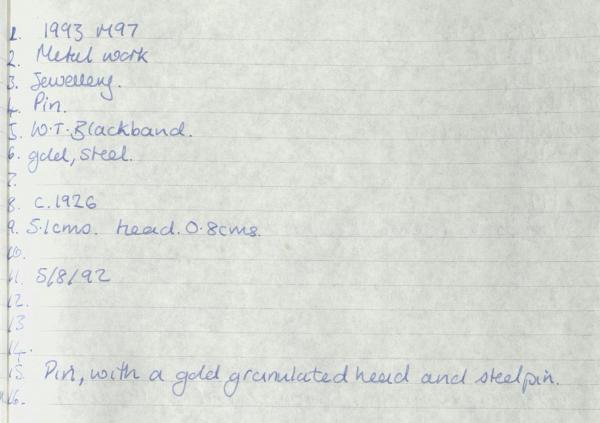 1. 1993 M97
2. Metal work
3. Jewellery.
4. Pin.
5. W.T. Blackband.
6. gold, steel.
7.
8. c.1926
9. 5.1cms. head. 0.8cms.
10.
11. 5/8/92
12.
13
14.
15. Pin, with a gold granulated head and steel pin.
16.